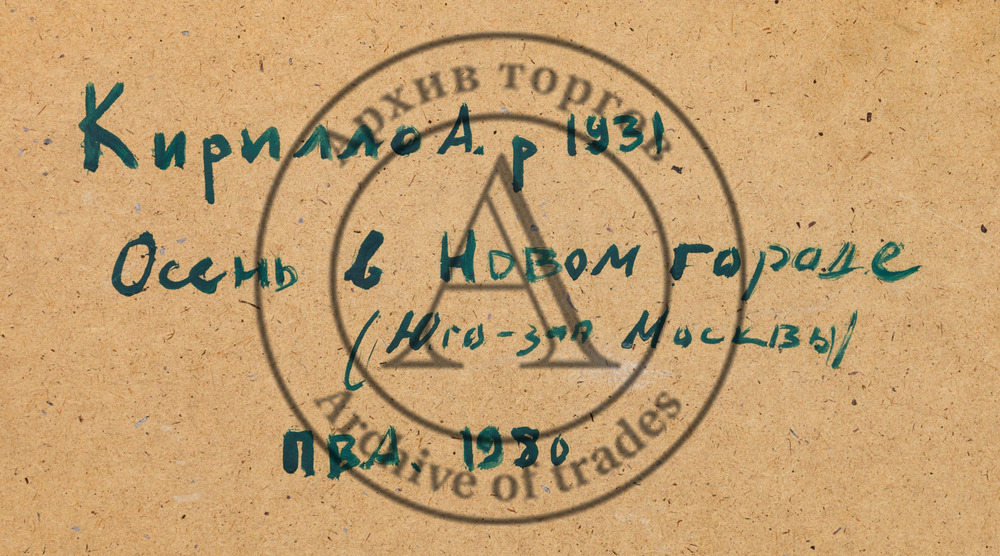 Кирилло А. р 1931
Осень в Новом городе
(Юго-зап Москвы)
ПВА. 1980
Архив торгов
Archive of trades